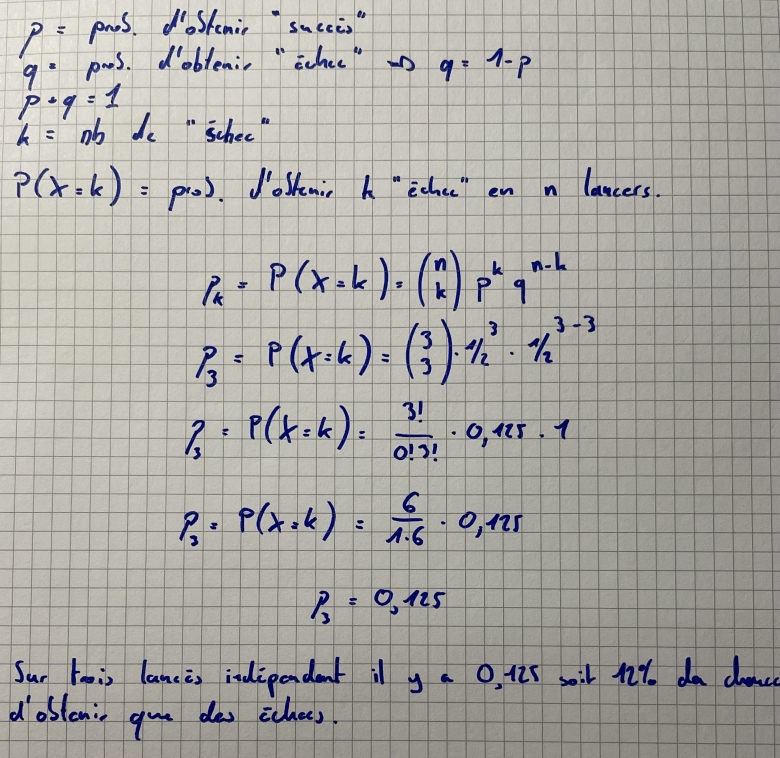 p = prob. d'obtenir "succès"
q = prob. d'obtenir "échec" => q = 1-p
p+q = 1
k = nb de "échec"
P(X=k) = prob. d'obtenir k "échec" en n lancers.
p_k = P(X=k) = (n k) p^k q^{n-k}
p_3 = P(X=k) = (3 3) · 1/2^3 · 1/2^{3-3}
p_3 = P(X=k) = 3!/0!3! · 0,125 · 1
p_3 = P(X=k) = 6/1·6 · 0,125
p_3 = 0,125
Sur trois lancés indépendant il y a 0,125 soit 12% de chance
d'obtenir que des échecs.